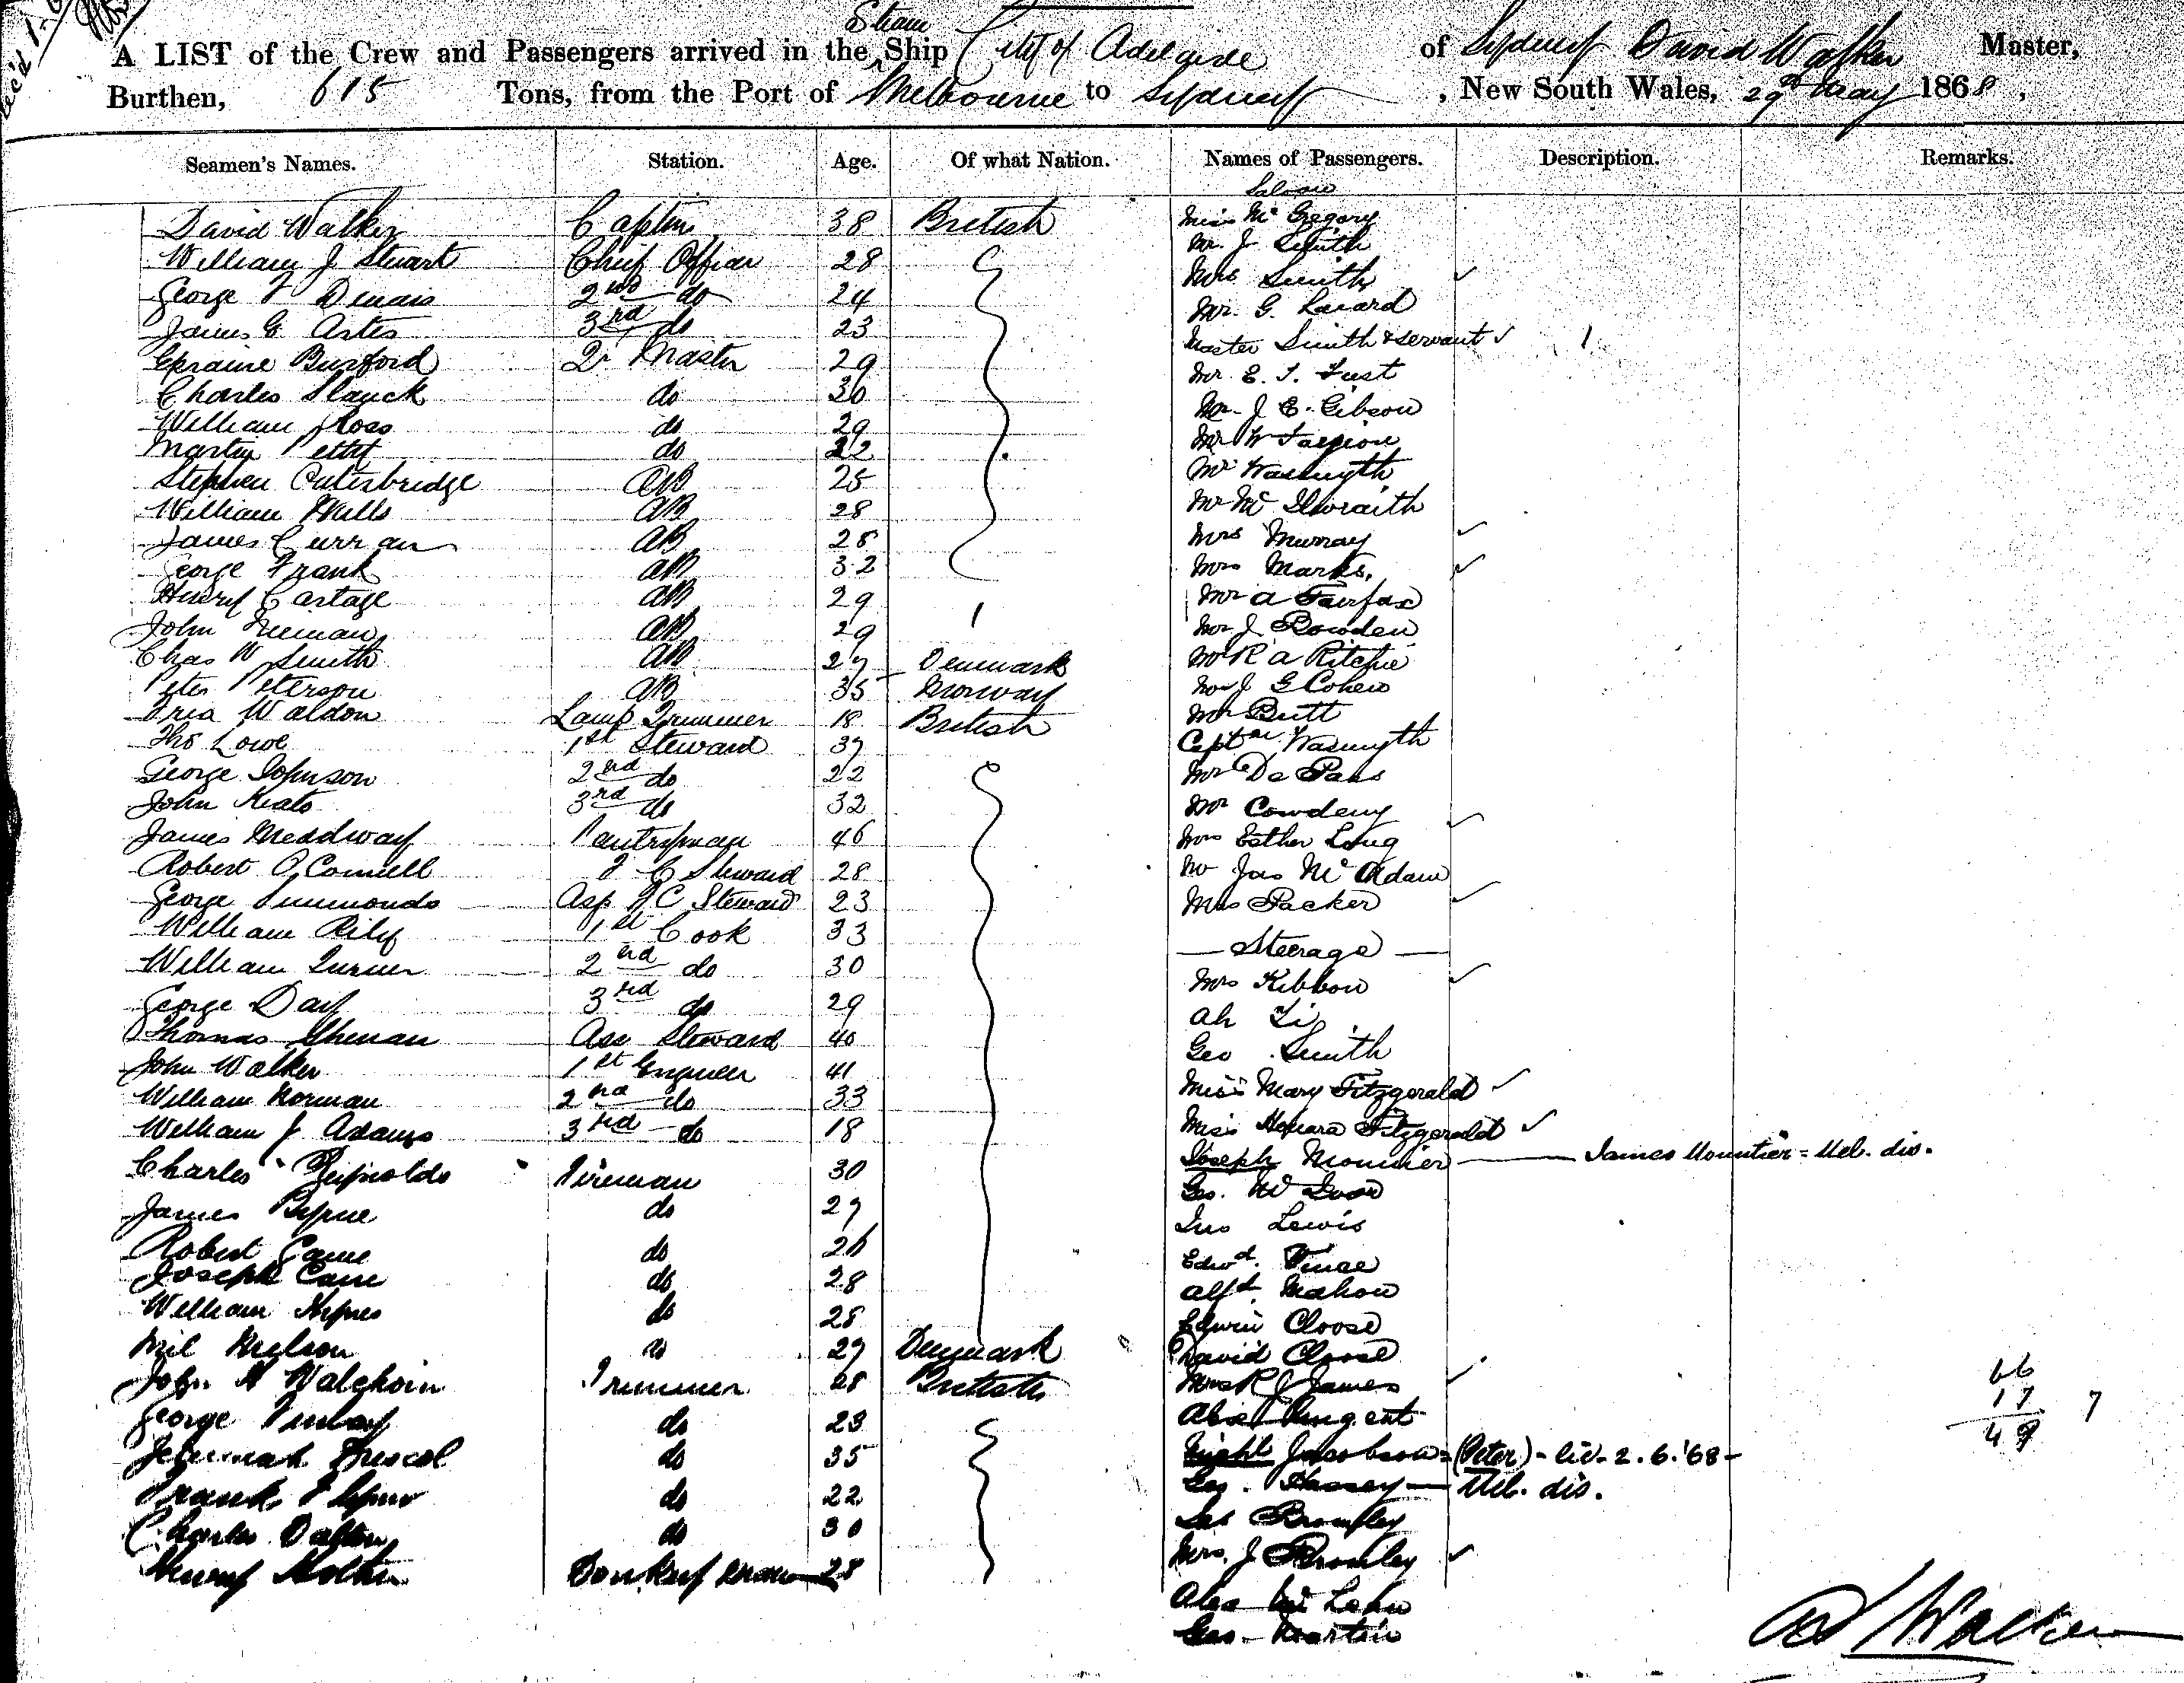 Steam
A LIST of the Crew and Passengers arrived in the Ship City of Adelaide of Sydney David Walker Master,
Burthen, 615 Tons, from the Port of Melbourne to Sydney, New South Wales, 29th May 1868,
Seamen's Names. Station. Age. Of what Nation. Names of Passengers. Description. Remarks.
Saloon
David Walker Captin 38 British
William J Stewart Chief Officer 28
George F Dennis 2nd do 24
James E Artis 3rd do 23
Burford Qr Master 29
Charles Slauck do 30
William Ross do 29
Martin Pettit do 22
Stephen Outerbridge AB 25
William Mills AB 28
James Curran AB 28
George Frank AB 32
Henry Cartage AB 29
John AB 29
Chas W Smith AB 27 Denmark
Peter Peterson AB 35 Norway
Waldon Lamp Trimmer 18 British
Thos Lowe 1st Steward 37
George Johnson 2nd do 22
John Keats 3rd do 32
James Meddway Pantryman 46
Robert O Connell F C Steward 28
George Simmonds Ass F C Steward 23
William Rily 1st Cook 33
William Turner 2nd do 30
George Day 3rd do 29
Thomas Ass Steward 40
John Walker 1st Engineer 41
William Norman 2nd do 33
William J Adams 3rd do 18
Charles Reynolds Fireman 30
James Byrne do 27
Robert do 26
Joseph do 28
William Hynes do 28
Nielson do 27 Denmark
John Trimmer 28 British
George do 23
Jeremiah Driscol do 35
Frank do 22
Charles Dalton do 30
Henry Donkeyman 28
Miss McGregory
Mr. J Smith
Mrs Smith ✓
Mr. G.
Master Smith & servant ✓ 1
Mr E. J. Fust
Mr J E. Gibson
Mr W
Mr Wasmyth
Mr McIlwraith
Mrs Murray ✓
Mrs Marks, ✓
Mr A Fairfax
Mr J Rowden
Mr R A Ritchie
Mr J G Cohen
Mr Butt
Captn Wasmyth
Mr De
Mr Cowdeny
Mrs Esther Long ✓
Mr Jas McAdam
Mrs Packer ✓
— Steerage —
Mrs Kibbon ✓
Ah Li
Geo Smith
Miss Mary Fitzgerald ✓
Miss Honora Fitzgerald ✓
Joseph Mounier — James Mountier = Mel. dis.
Geo. W
Jno Lewis
Edwd. Vinae
Alfd. Mahon
Edwin Cloose
David Cloose
Mrs R J James ✓
Jacobson = (Peter) - liv. 2.6.'68 -
Geo. Hassey — Mel. dis.
Jas Bromley
Mrs. J Bromley ✓
Alex Mc
Geo Martin
66
17 7
49
D Walker